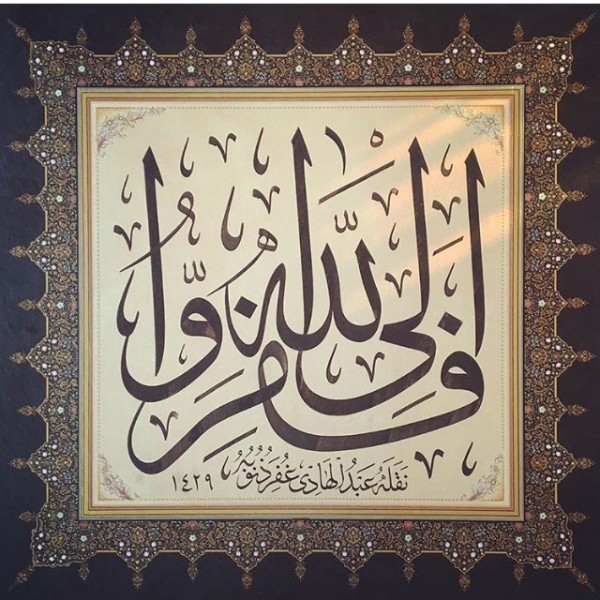 ففروا إلى الله
نقله عبد الهادي غفر ذنوبه ١٤٢٩